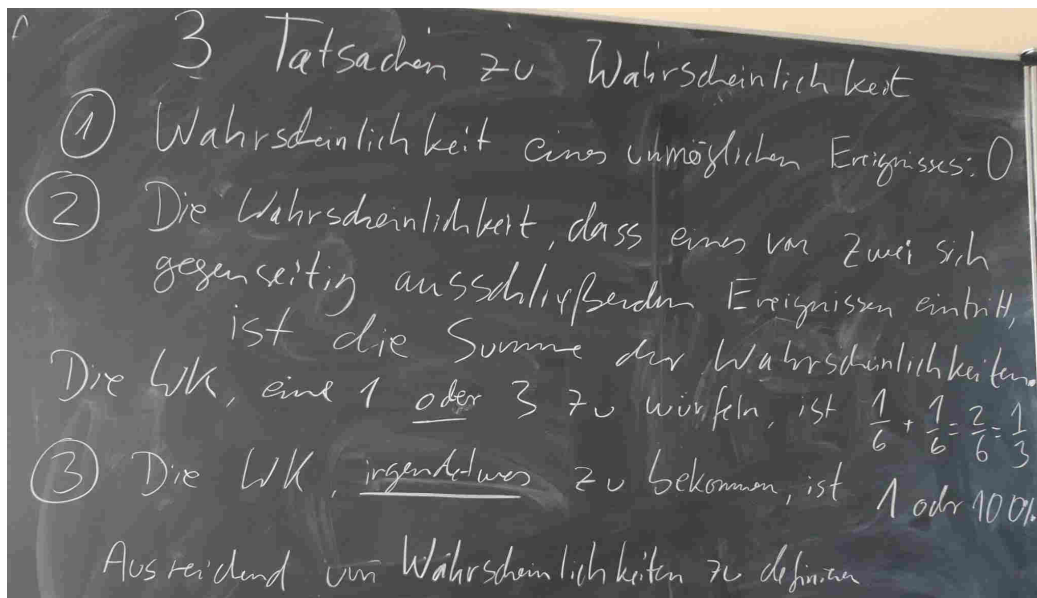 3 Tatsachen zu Wahrscheinlichkeit
① Wahrscheinlichkeit eines unmöglichen Ereignisses: 0
② Die Wahrscheinlichkeit, dass eines von zwei sich
gegenseitig ausschließenden Ereignissen eintritt,
ist die Summe der Wahrscheinlichkeiten.
Die WK, eine 1 oder 3 zu würfeln, ist 1/6 + 1/6 = 2/6 = 1/3
③ Die WK, irgendetwas zu bekommen, ist 1 oder 100%
Ausreichend um Wahrscheinlichkeiten zu definieren